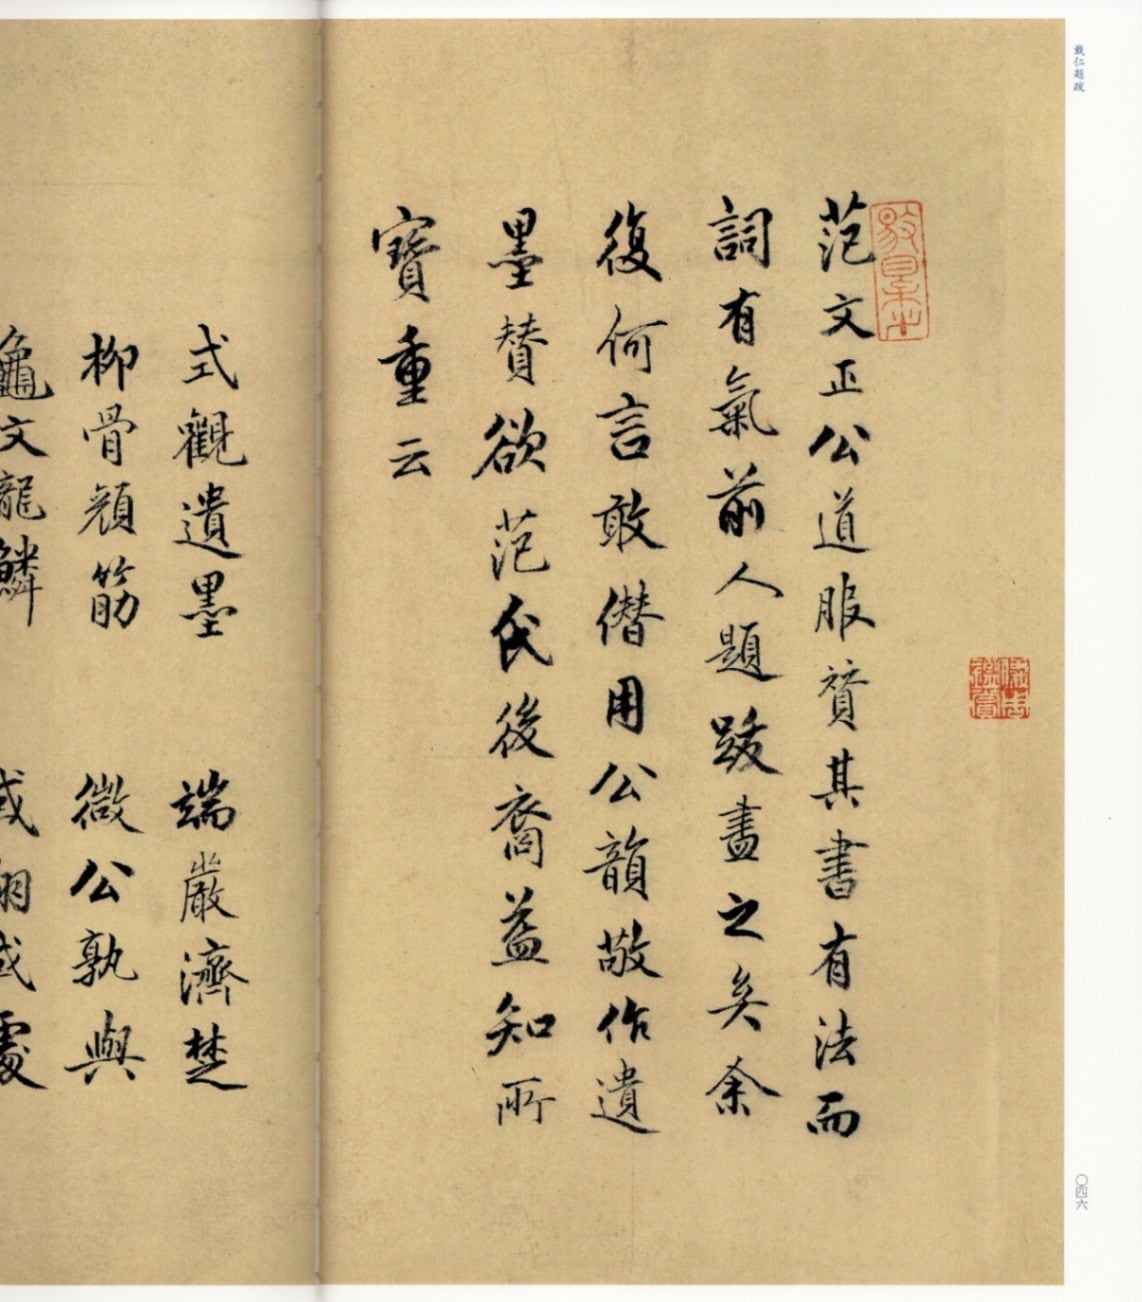 戴仁題跋
范文正公道服贊其書有法而
詞有氣前人題跋盡之矣余
復何言敢僣用公韻敬作遺
墨贊欲范氏後裔益知所
寶重云
式觀遺墨 端嚴濟楚
柳骨顔筋 微公孰與
龜文龍鱗 或翔或處
〇四六